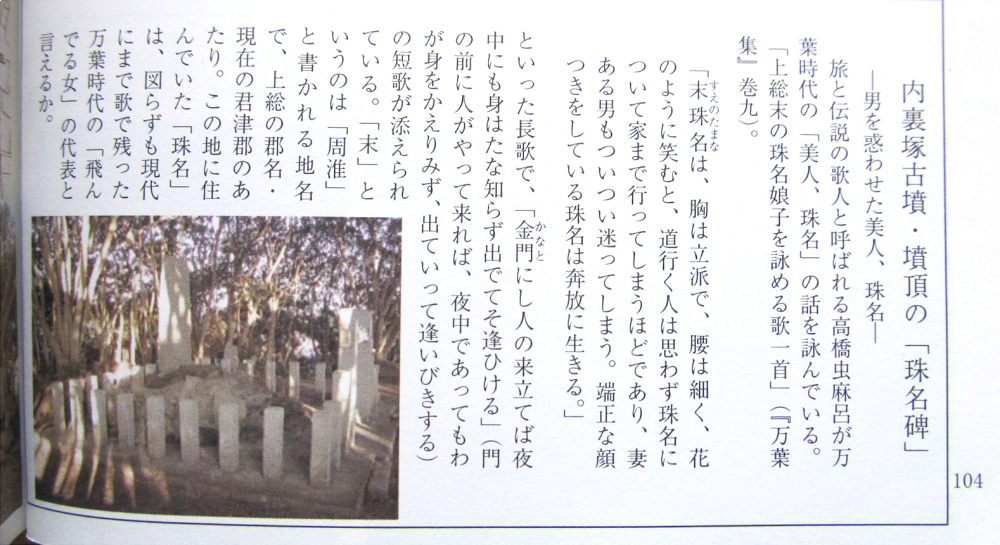 内裏塚古墳・墳頂の「珠名碑」
―男を惑わせた美人、珠名―
旅と伝説の歌人と呼ばれる高橋虫麻呂が万
葉時代の「美人、珠名」の話を詠んでいる。
「上総末の珠名娘子を詠める歌一首」（『万葉
集』巻九）。
「末珠名は、胸は立派で、腰は細く、花
すえのたまな
のように笑むと、道行く人は思わず珠名に
ついて家まで行ってしまうほどであり、妻
ある男もついつい迷ってしまう。端正な顔
つきをしている珠名は奔放に生きる。」
といった長歌で、「金門にし人の来立てば夜
かなと
中にも身はたな知らず出でてそ逢ひける」（門
の前に人がやって来れば、夜中であってもわ
が身をかえりみず、出ていって逢いびきする）
の短歌が添えられ
ている。「末」と
いうのは「周淮」
と書かれる地名
で、上総の郡名・
現在の君津郡のあ
たり。この地に住
んでいた「珠名」
は、図らずも現代
にまで歌で残った
万葉時代の「飛ん
でる女」の代表と
言えるか。
104